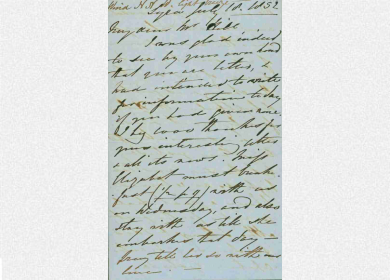 July 10. 1852
My dear Mr
I was glad indeed
to see by your own hand
that you are better, I
had intended to write
for information today
if you had given none.
1000 thanks for
your interesting letter
& all its news. Miss
Elizabeth must break-
fast with us
on Wednesday, and also
stay with us till she
embarks that day -
Pray tell her so with our
love -